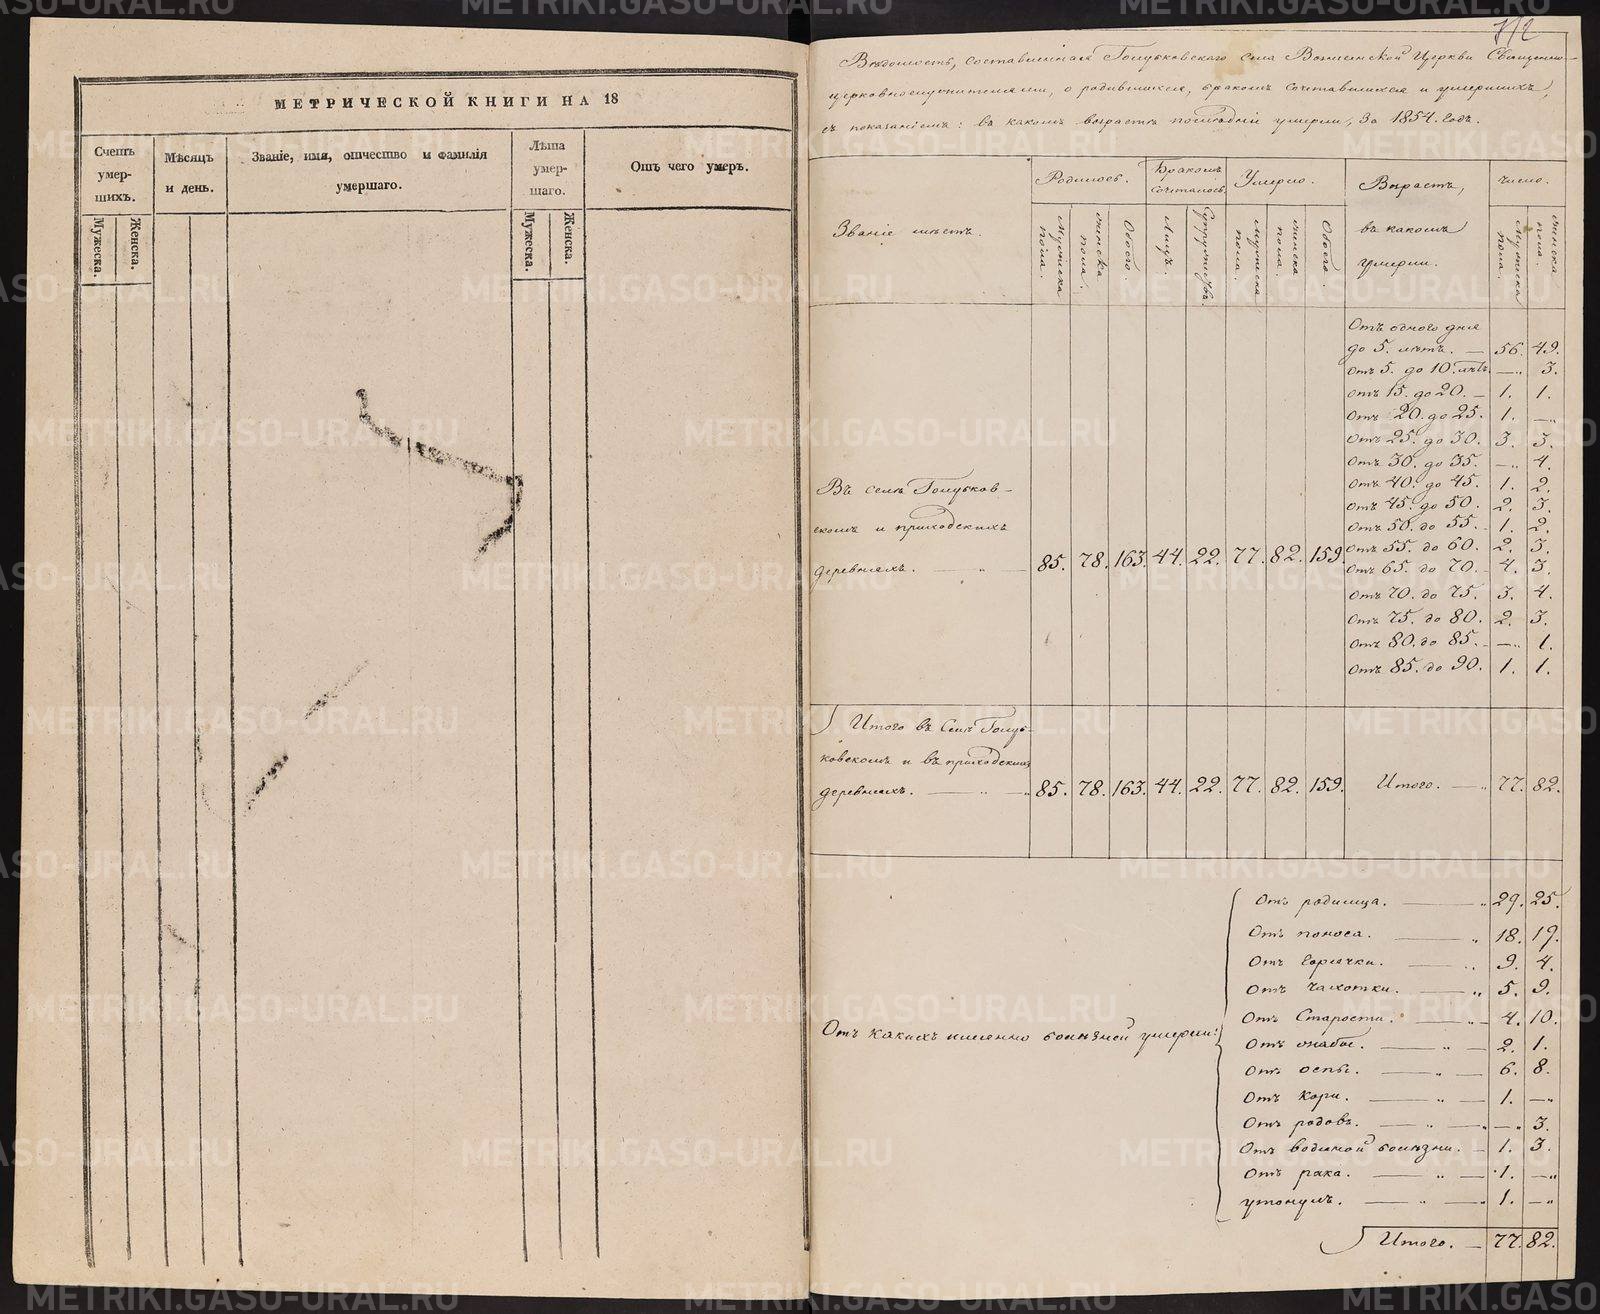 МЕТРИЧЕСКОЙ КНИГИ НА 18
Счетъ умер- шихъ.
Мѣсяцъ и день.
Званіе, имя, отчество и фамилія умершаго.
Лѣта умер- шаго.
Отъ чего умеръ.
Мужеска.
Женска.
Мужеска.
Женска.
Вѣдомость, составленная Голубковскаго села Вознесенской Церкви Священно-
церковнослужителями, о родившихся, бракомъ сочетавшихся и умершихъ,
съ показаніемъ: въ какомъ возрастѣ послѣдніи умерли, за 1854. годъ.
Званіе мѣстъ.
Родилось.
Бракомъ сочеталось.
Умерло.
Возрастъ, въ какомъ умерли.
число.
Мужеска пола.
женска пола.
Обоего
Лицъ.
Супружествъ.
мужеска пола.
женска пола.
Обоего.
Мужеска пола.
женска пола.
Отъ одного дня
до 5. лѣтъ. — 56. 49.
Отъ 5. до 10. лѣтъ — „ 3.
Отъ 15. до 20. — 1. 1.
Отъ 20. до 25. 1. —
Отъ 25. до 30. 3. 3.
Отъ 30. до 35. —„ 4.
Отъ 40. до 45. 1. 2.
Отъ 45. до 50. 2. 3.
Отъ 50. до 55. 1. 2.
Отъ 55. до 60. 2. 3.
Отъ 65. до 70. 4. 3.
Отъ 70. до 75. 3. 4.
Отъ 75. до 80. 2. 3.
Отъ 80. до 85. —„ 1.
Отъ 85. до 90. 1. 1.
Въ селѣ Голубков-
скомъ и приходскихъ
деревняхъ. — „ — 85. 78. 163. 44. 22. 77. 82. 159.
Итого въ Селѣ Голуб-
ковскомъ и въ приходскихъ
деревняхъ. — „ — 85. 78. 163. 44. 22. 77. 82. 159. Итого. — „ 77. 82.
Отъ какихъ именно болѣзней умерли:
Отъ родимца. — „ 29. 25.
Отъ поноса. — „ 18. 19.
Отъ Горячки. — „ 9. 4.
Отъ Чахотки. — „ 5. 9.
Отъ Старости. — „ 4. 10.
Отъ жабы. — „ — 2. 1.
Отъ оспы. — „ — 6. 8.
Отъ Кори. — „ — 1. —„
Отъ родовъ. — „ — „ 3.
Отъ водяной болѣзни. — 1. 3.
Отъ рака. — „ — 1. —„
утонулъ. — „ — 1. —„
Итого. — 77. 82.
METRIKI.GASO-URAL.RU